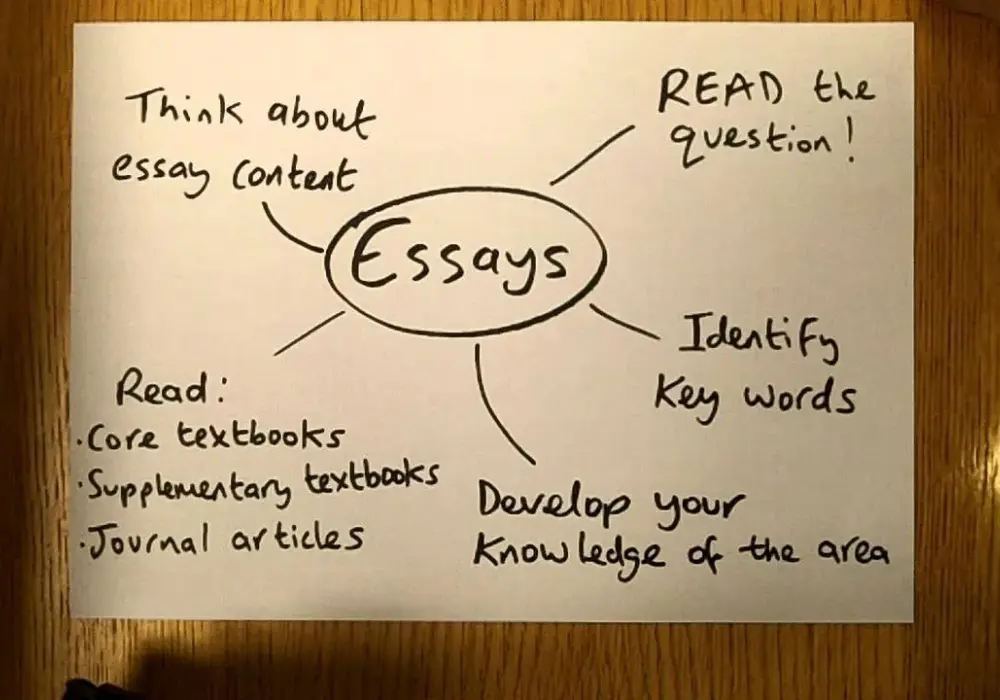 Think about
essay content
READ the
question!
Essays
Identify
Key words
Read:
·Core textbooks
·Supplementary textbooks
·Journal articles
Develop your
Knowledge of the area